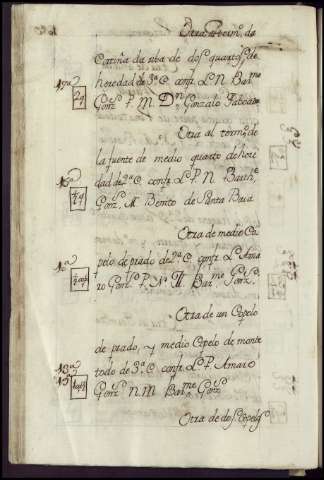 Otra al term.º de
Catiña da riba de dos quartos de
heredad de 3ª C. confr. L. N. Bar.me
Gonz.s P. M. Dn. Gonzalo Taboada
Otra al term.º de
la fuente de medio quarto de here
dad de 2ª C. confr. L. P. N. Barth.e
Gonz.s M. Bento de Santa Baia
Otra de medio Co
pelo de prado de 2ª C. confr. L. Ama
ro Gonz.s P. y N. Bar.me Gonz.s
Otra de un Copelo
de prado, y medio Copelo de monte
todo de 3ª C. confr. L. P. Amaro
Gonz.s N. M. Bar.me Gonz.s
Otra de dos Copelos